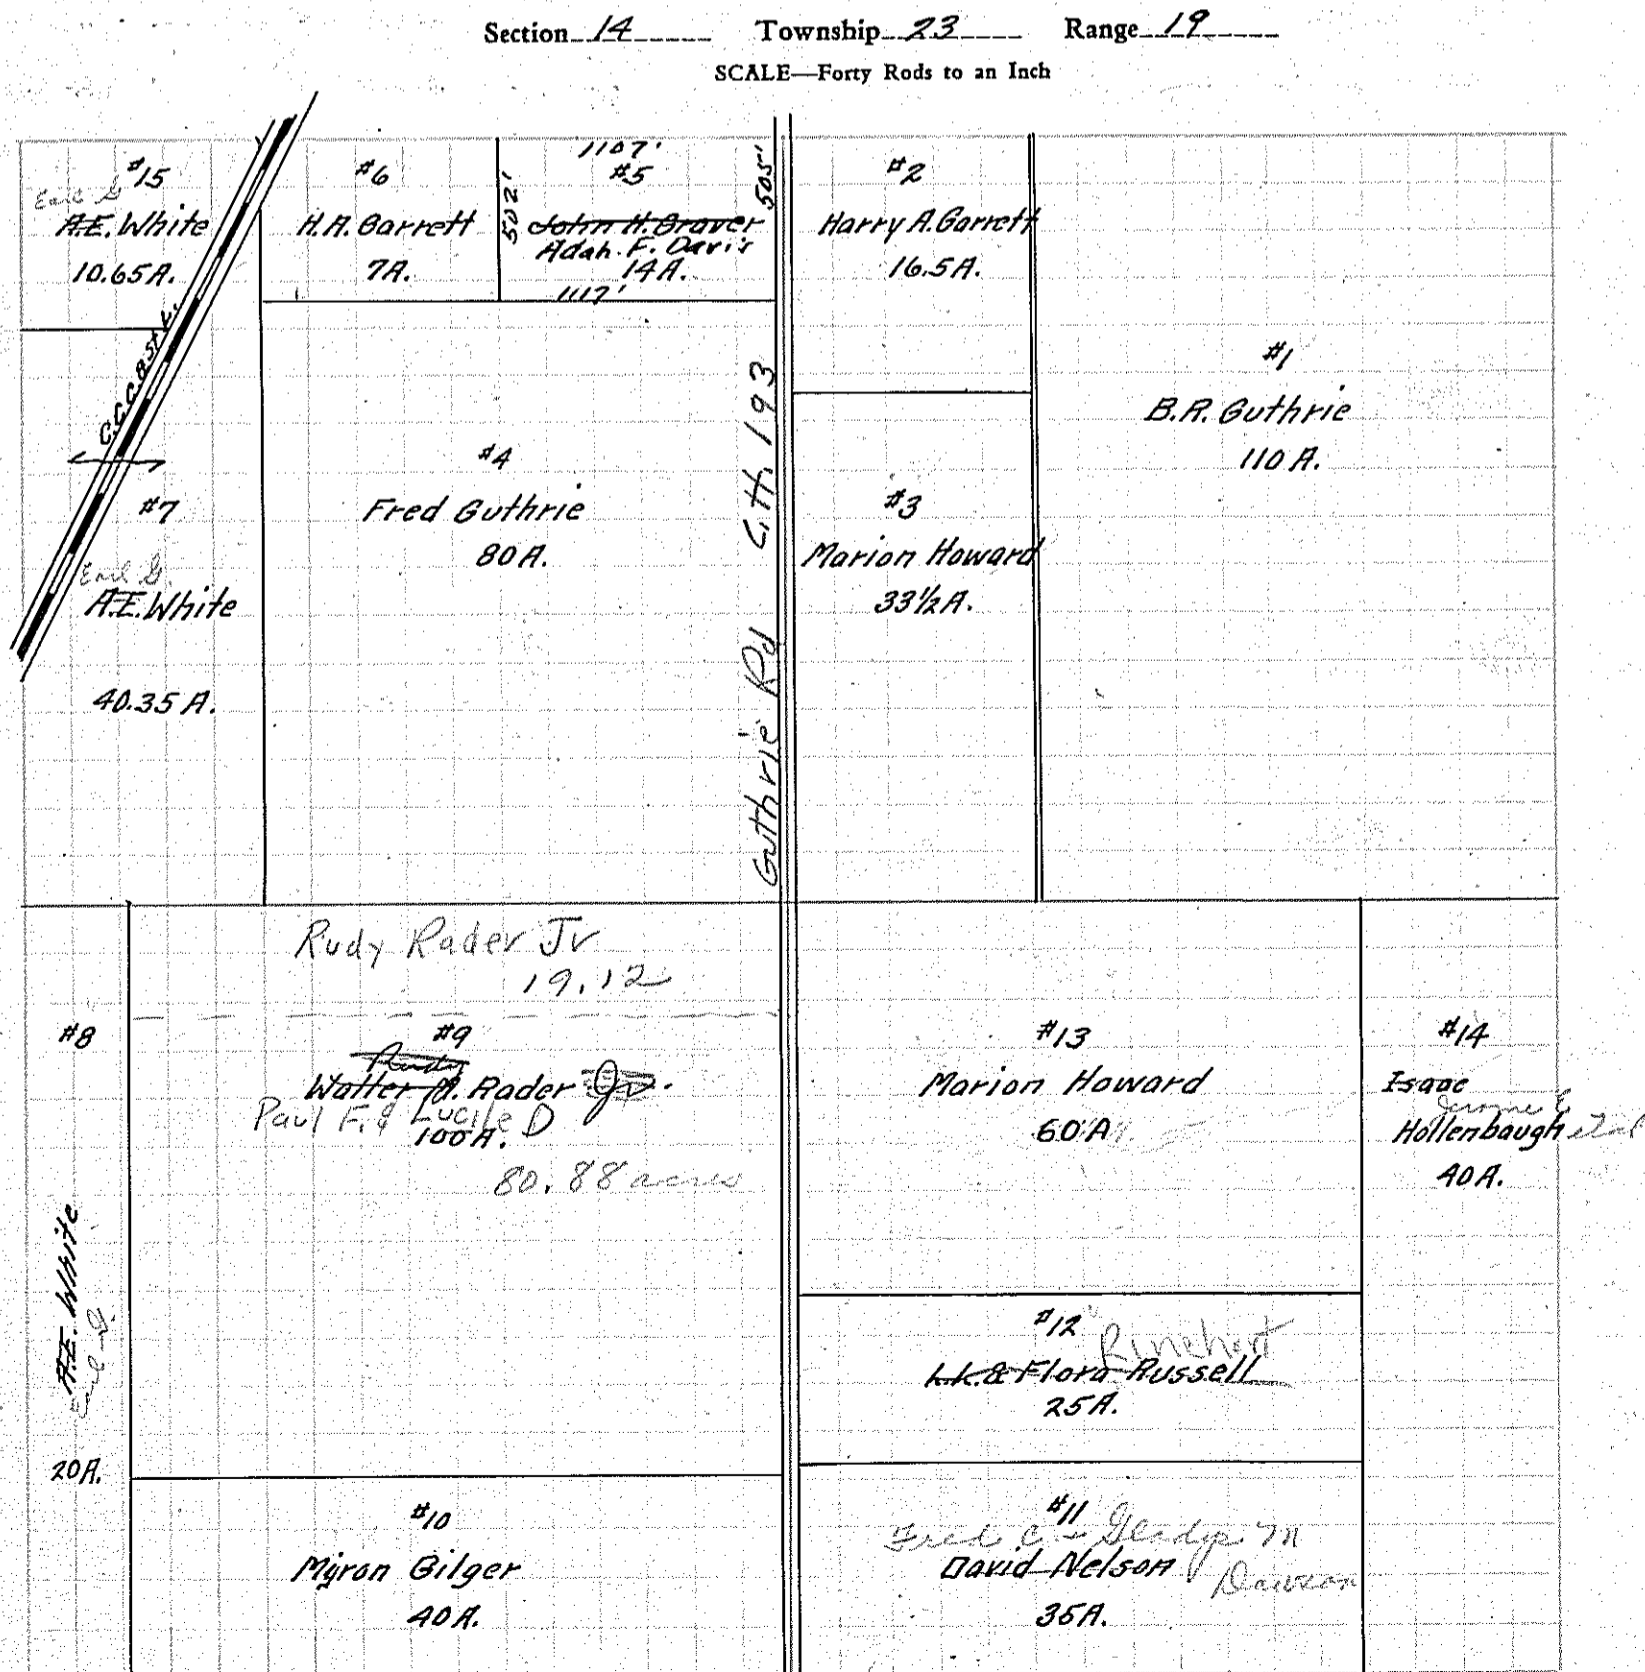 Section 14 Township 23 Range 19
SCALE—Forty Rods to an Inch
#15
Earl G
A.E. White
10.65A.
#6
H.A. Garrett
7A.
1107'
#5
502'
505'
John H. Graver
Adah. F. Davis
14A.
1117'
#2
Harry A. Garrett
16.5A.
#1
B.R. Guthrie
110 A.
C.C.C.&St.L.
#7
Earl G.
A.E. White
40.35 A.
#4
Fred Guthrie
80A.
Guthrie Rd C.H. 193
#3
Marion Howard
33½A.
Rudy Rader Jr
19.12
#8
A.E. White
Earl G.
20A.
#9
Rudy
Walter M. Rader Jr.
Paul F. & Lucile D
100A.
80.88 acres
#13
Marion Howard
60A
#14
Isaac
Jerome C
Hollenbaugh et al
40A.
#12
Rinehart
L.K. & Flora Russell
25A.
#10
Myron Gilger
40A.
#11
Fred C + Gladys M
David Nelson
Dawson
35A.